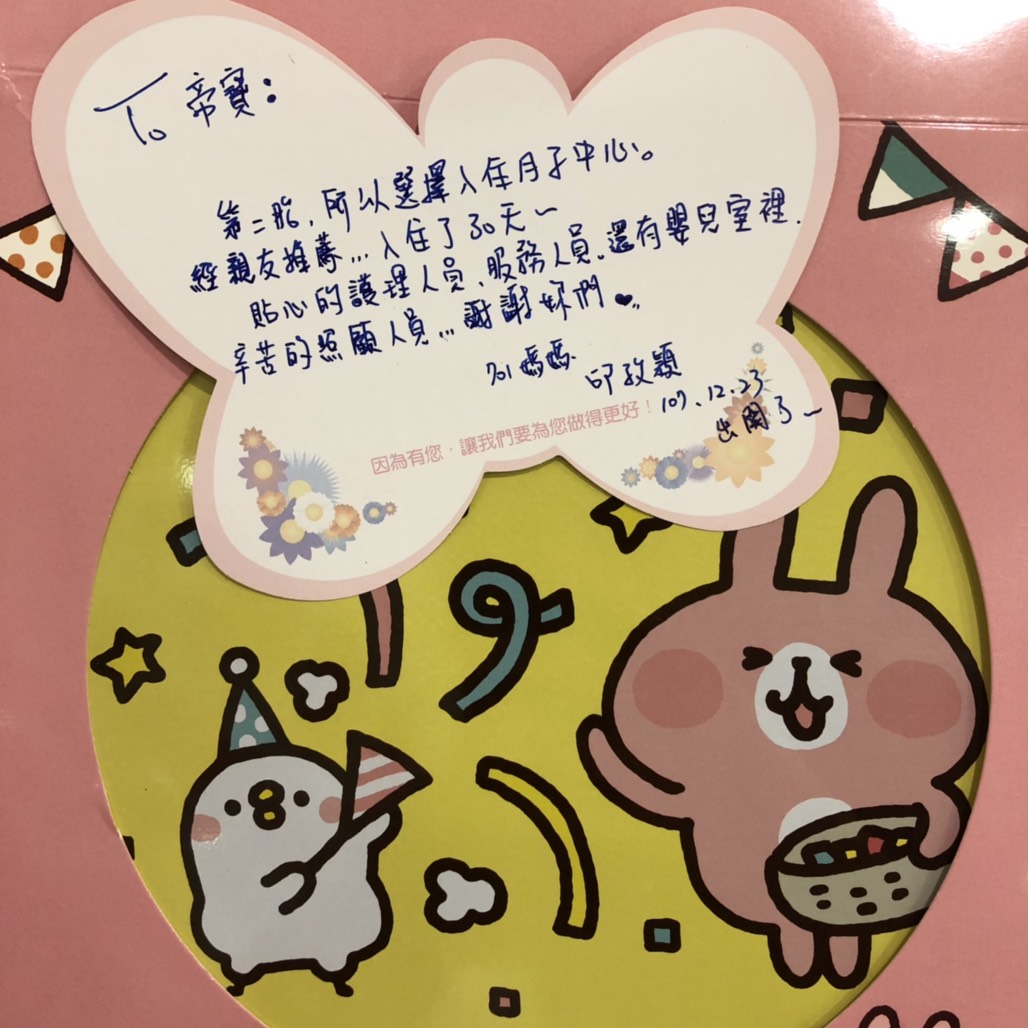 To 帝寶：
第二胎，所以選擇入住月子中心。
經親友推薦...入住了30天~
貼心的護理人員、服務人員、還有嬰兒室裡.
辛苦的照顧人員...謝謝妳們❤
701媽媽 邱孜穎
107.12.23
出關了~
因為有您，讓我們要為您做得更好！